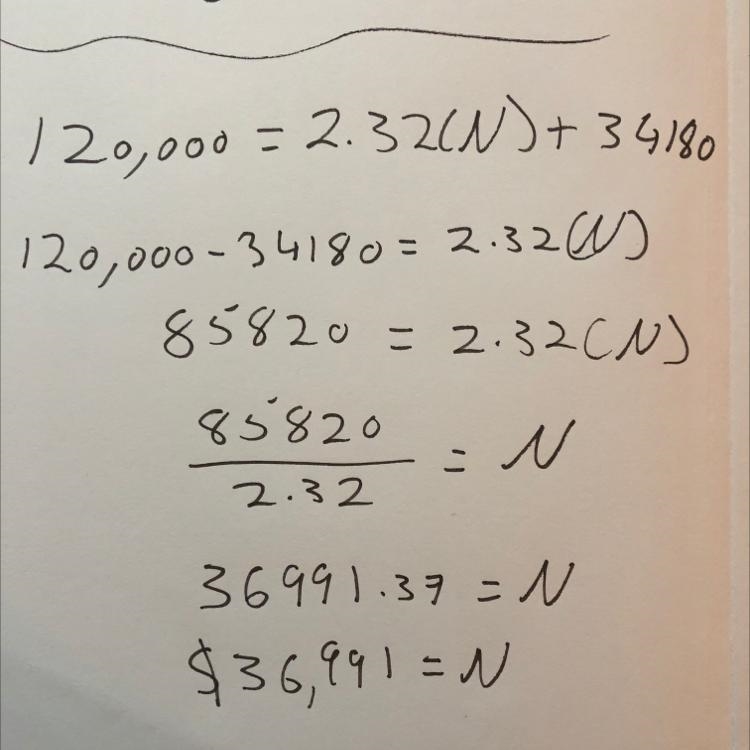 120,000 = 2.32(N) + 34180
120,000 - 34180 = 2.32(N)
85820 = 2.32(N)
85820
2.32
= N
36991.37 = N
$36,991 = N